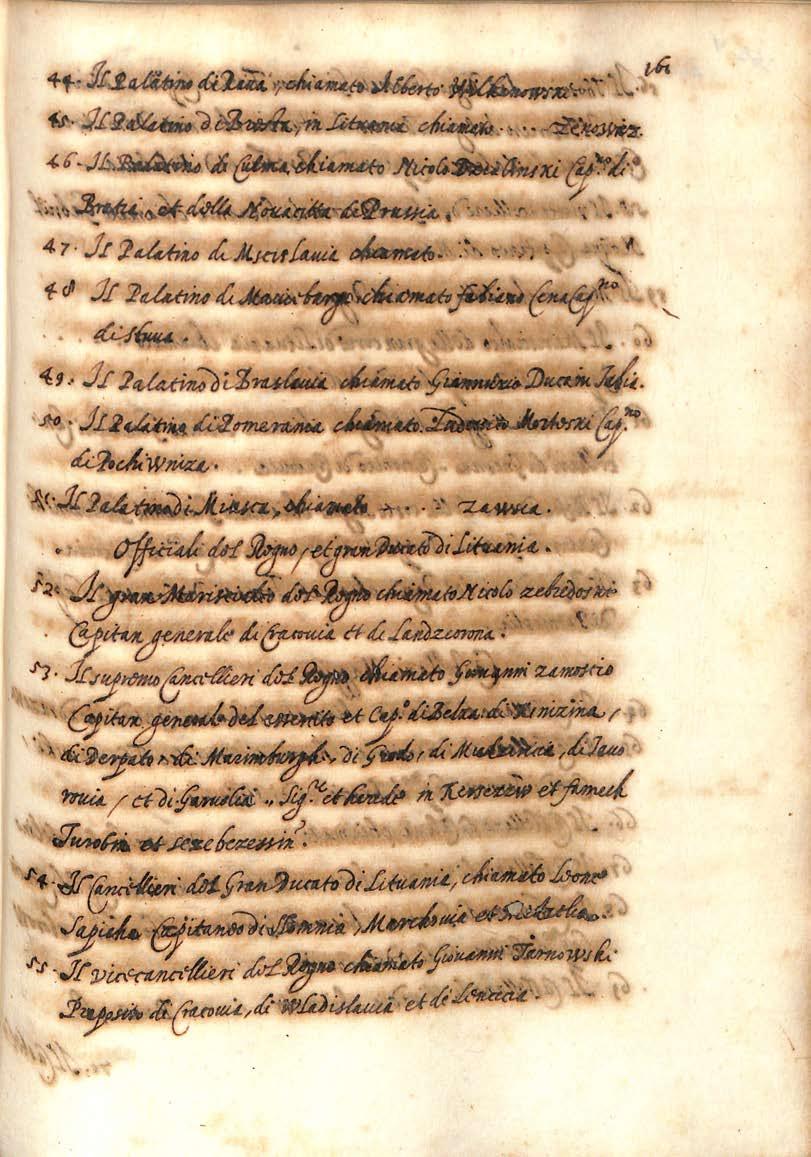 161
44. Il Palatino di Raua, chiamato Alberto Wilkanowski.
45. Il Palatino di Bresta, in Lituania chiamato .... Zenowiz.
46. Il Palatino di Culma, chiamato Nicolo Dzialinski Cap.no di
Bratia, et della Nouacitta de Prussia.
47. Il Palatino di Mscislauia chiamato.
48 Il Palatino di chiamato fabiano Cena Cap.no
di Stuua.
49. Il Palatino di Braslauia chiamato Ducain
50. Il Palatino di Pomerania chiamato. Ludouico Morteski Cap.no
di Pochiwniza.
51. Il Palatino di Minsca, chiamato .... zawsia.
Officiali del Regno, et gran Ducato di Lituania.
52. Il gran Marisciallo del Regno chiamato Nicolo zebzedoski
Capitan generale di Cracouia et de Landzcorona.
53. Il supremo Cancellieri del Regno chiamato Giouanni zamoscio
Capitan generale del essercito et Cap.o di Belza di Knizina,
di Derpato, di Marimburgh, di Grodo, di di Jauo
rouia, et di Garuolia., Sig.re et herede in Kerzezew et samech
Turobin et
54. Il Cancellieri del Gran Ducato di Lituania, chiamato Leone
Sapieha Capitaneo di Slomnia, Marchouia et
55. Il vicecancellieri del Regno chiamato Giovanni Tarnowski
Preposito di Cracouia, di Wladislauia et de Lencicia.